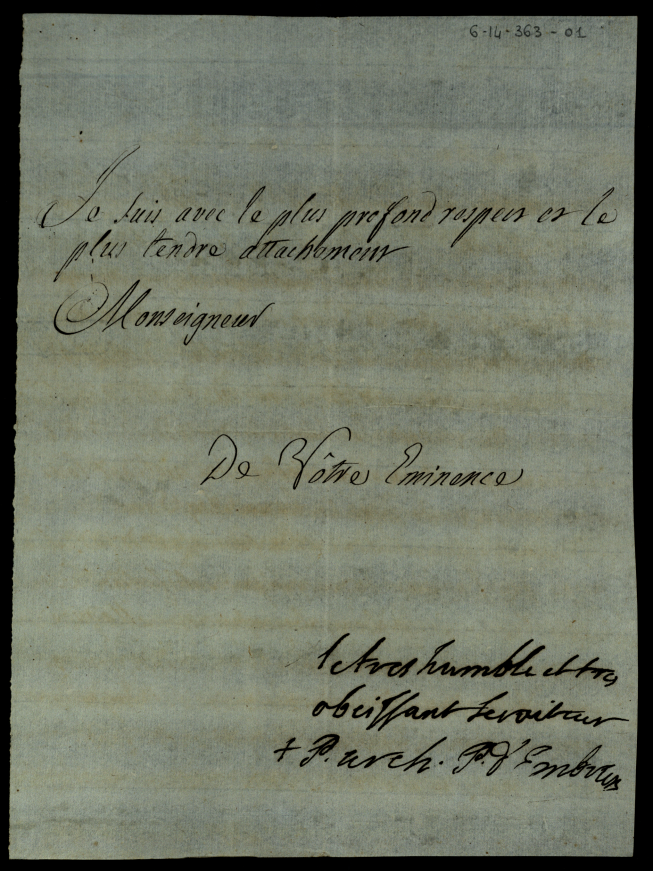 6-14-363-01
Je suis avec le plus profond respect et le
plus tendre attachement
Monseigneur
De Vôtre Eminence
le tres humble et tres
obeissant serviteur
+ P. arch. P. d'Embrun